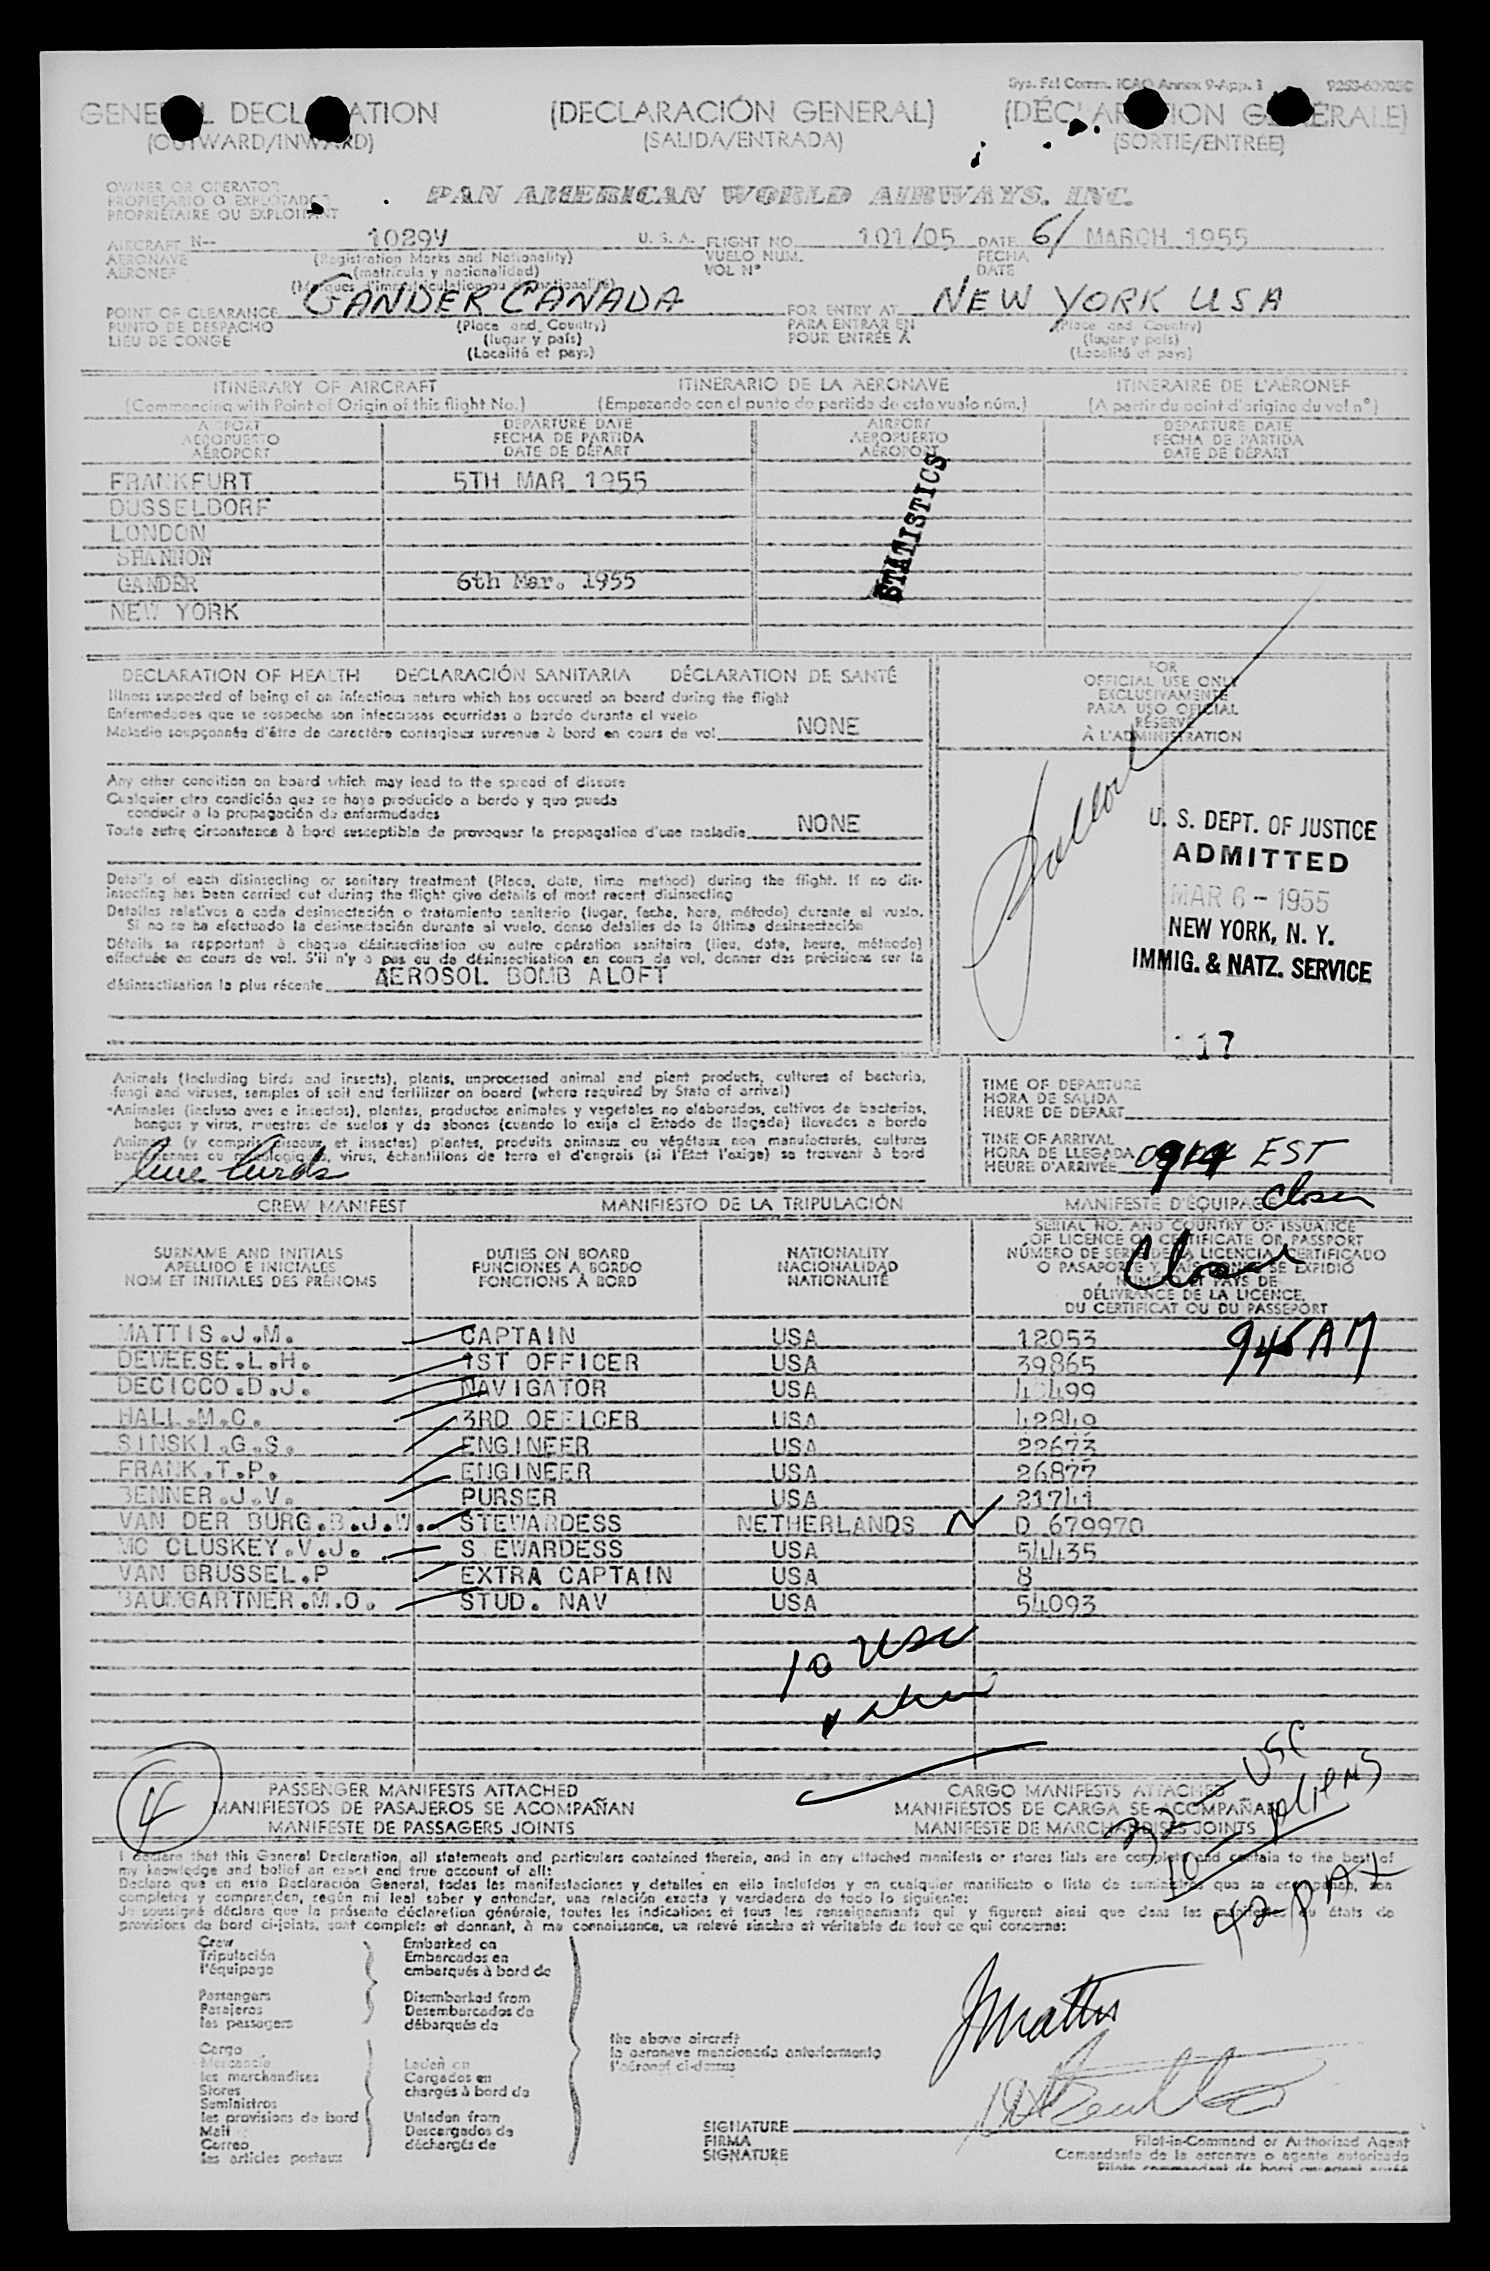 Sys. Fal Comm. ICAO Annex 9-App. 1
GENERAL DECLARATION (DECLARACIÓN GENERAL) (DÉCLARATION GÉNÉRALE)
(OUTWARD/INWARD) (SALIDA/ENTRADA) (SORTIE/ENTRÉE)
OWNER OR OPERATOR
PROPIETARIO O EXPLOTADOR
PROPRIÉTAIRE OU EXPLOITANT
PAN AMERICAN WORLD AIRWAYS, INC.
AIRCRAFT N-- 1029V U. S. A. FLIGHT NO. 101/05 DATE 6/ MARCH 1955
AERONAVE (Registration Marks and Nationality) VUELO NUM. FECHA
AERONEF (matrícula y nacionalidad) VOL N° DATE
(Marques d'immatriculation ou de nationalité)
POINT OF CLEARANCE GANDER CANADA FOR ENTRY AT NEW YORK USA
PUNTO DE DESPACHO (Place and Country) PARA ENTRAR EN (Place and Country)
LIEU DE CONGÉ (lugar y país) POUR ENTRÉE À (lugar y país)
(Localité et pays) (Localité et pays)
ITINERARY OF AIRCRAFT ITINERARIO DE LA AERONAVE ITINERAIRE DE L'AÉRONEF
(Commencing with Point of Origin of this flight No.) (Empezando con el punto de partida de este vuelo núm.) (A partir du point d'origine du vol n°)
AIRPORT DEPARTURE DATE AIRPORT DEPARTURE DATE
AEROPUERTO FECHA DE PARTIDA AEROPUERTO FECHA DE PARTIDA
AÉROPORT DATE DE DÉPART AÉROPORT DATE DE DÉPART
FRANKFURT 5TH MAR 1955
DUSSELDORF
LONDON
SHANNON
GANDER 6th Mar. 1955
NEW YORK
STATISTICS
DECLARATION OF HEALTH DECLARACIÓN SANITARIA DÉCLARATION DE SANTÉ
Illness suspected of being of an infectious nature which has occured on board during the flight
Enfermedades que se sospecha son infecciosas ocurridas a bordo durante el vuelo
Maladie soupçonnée d'être de caractère contagieux survenue à bord en cours de vol NONE
Any other condition on board which may lead to the spread of disease
Cualquier otra condición que se haya producido a bordo y que pueda
conducir a la propagación de enfermedades
Toute autre circonstance à bord susceptible de provoquer la propagation d'une maladie NONE
Details of each disinsecting or sanitary treatment (Place, date, time method) during the flight. If no dis-
insecting has been carried out during the flight give details of most recent disinsecting
Detalles relativos a cada desinsectación o tratamiento sanitario (lugar, fecha, hora, método) durante el vuelo.
Si no se ha efectuado la desinsectación durante el vuelo, dense detalles de la última desinsectación
Détails se rapportant à chaque désinsectisation ou autre opération sanitaire (lieu, date, heure, méthode)
effectuée en cours de vol. S'il n'y a pas eu de désinsectisation en cours de vol, donner des précisions sur la
désinsectisation la plus récente AEROSOL BOMB ALOFT
FOR
OFFICIAL USE ONLY
EXCLUSIVAMENTE
PARA USO OFICIAL
RÉSERVÉ
À L'ADMINISTRATION
U. S. DEPT. OF JUSTICE
ADMITTED
MAR 6 - 1955
NEW YORK, N. Y.
IMMIG. & NATZ. SERVICE
117
Animals (including birds and insects), plants, unprocessed animal and plant products, cultures of bacteria,
fungi and viruses, samples of soil and fertilizer on board (where required by State of arrival)
Animales (incluso aves e insectos), plantas, productos animales y vegetales no elaborados, cultivos de bacterias,
hongos y virus, muestras de suelos y de abonos (cuando lo exija el Estado de llegada) llevados a bordo
Animaux (y compris oiseaux et insectes) plantes, produits animaux ou végétaux non manufacturés, cultures
bactériennes ou mycologiques, virus, échantillons de terre et d'engrais (si l'État l'exige) se trouvant à bord
live birds
TIME OF DEPARTURE
HORA DE SALIDA
HEURE DE DÉPART
TIME OF ARRIVAL
HORA DE LLEGADA
HEURE D'ARRIVÉE 0914 EST
CREW MANIFEST MANIFIESTO DE LA TRIPULACIÓN MANIFESTE D'ÉQUIPAGE
SURNAME AND INITIALS DUTIES ON BOARD NATIONALITY
APELLIDO E INICIALES FUNCIONES A BORDO NACIONALIDAD
NOM ET INITIALES DES PRÉNOMS FONCTIONS À BORD NATIONALITÉ
SERIAL NO. AND COUNTRY OF ISSUANCE
OF LICENCE OR CERTIFICATE OR PASSPORT
NÚMERO DE SERIE DE LA LICENCIA, CERTIFICADO
O PASAPORTE Y PAÍS DONDE SE EXPIDIÓ
NUMÉRO ET PAYS DE
DÉLIVRANCE DE LA LICENCE,
DU CERTIFICAT OU DU PASSEPORT
945 AM
MATTIS.J.M. CAPTAIN USA 12053
DEWEESE.L.H. 1ST OFFICER USA 39865
DECICCO.D.J. NAVIGATOR USA
HALL.M.C. 3RD OFFICER USA 42849
SINSKI.G.S. ENGINEER USA 22673
FRANK.T.P. ENGINEER USA 26877
BENNER.J.V. PURSER USA 21741
VAN DER BURG.B.J.W. STEWARDESS NETHERLANDS D 679970
MC CLUSKEY.V.J. S EWARDESS USA 54435
VAN BRUSSEL.P EXTRA CAPTAIN USA 8
BAUMGARTNER.M.O. STUD. NAV USA 54093
10 USC
4
PASSENGER MANIFESTS ATTACHED CARGO MANIFESTS ATTACHED
MANIFIESTOS DE PASAJEROS SE ACOMPAÑAN MANIFIESTOS DE CARGA SE ACOMPAÑAN
MANIFESTE DE PASSAGERS JOINTS MANIFESTE DE MARCHANDISES JOINTS
32 - USC
10 - Aliens
42 PAX
I declare that this General Declaration, all statements and particulars contained therein, and in any attached manifests or stores lists are complete and contain to the best of
my knowledge and belief an exact and true account of all:
Declaro que en esta Declaración General, todas las manifestaciones y detalles en ella incluídos y en cualquier manifiesto o lista de suministros que se acompañan, son
completos y comprenden, según mi leal saber y entender, una relación exacta y verdadera de todo lo siguiente:
Je soussigné déclare que la présente déclaration générale, toutes les indications et tous les renseignements qui y figurent ainsi que dans les manifestes ou états de
provisions de bord ci-joints, sont complets et donnent, à ma connaissance, un relevé sincère et véritable de tout ce qui concerne:
Crew Embarked on
Tripulación Embarcados en
l'équipage embarqués à bord de
Passengers Disembarked from
Pasajeros Desembarcados de
les passagers débarqués de
the above aircraft
la aeronave mencionada anteriormente
l'aéronef ci-dessus
Cargo
Mercancía Laden on
les marchandises Cargados en
Stores chargés à bord de
Suministros
les provisions de bord Unladen from
Mail Descargados de
Correo déchargés de
les articles postaux
JMattis
SIGNATURE
FIRMA
SIGNATURE
Pilot-in-Command or Authorized Agent
Comandante de la aeronave o agente autorizado